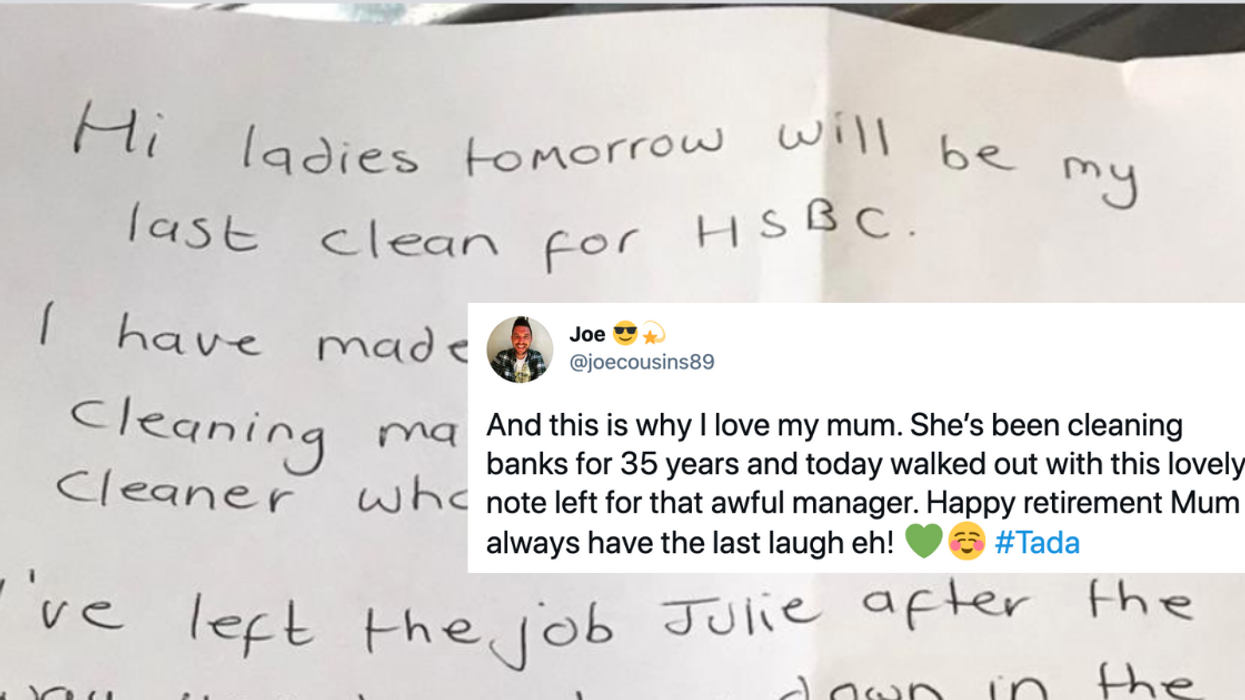 Hi ladies tomorrow will be my
last clean for HSBC.
I have made
cleaning ma
cleaner who
've left the job Julie after the
down in the
Joe 😎💫
@joecousins89
And this is why I love my mum. She’s been cleaning
banks for 35 years and today walked out with this lovely
note left for that awful manager. Happy retirement Mum
always have the last laugh eh! 💚☺️ #Tada